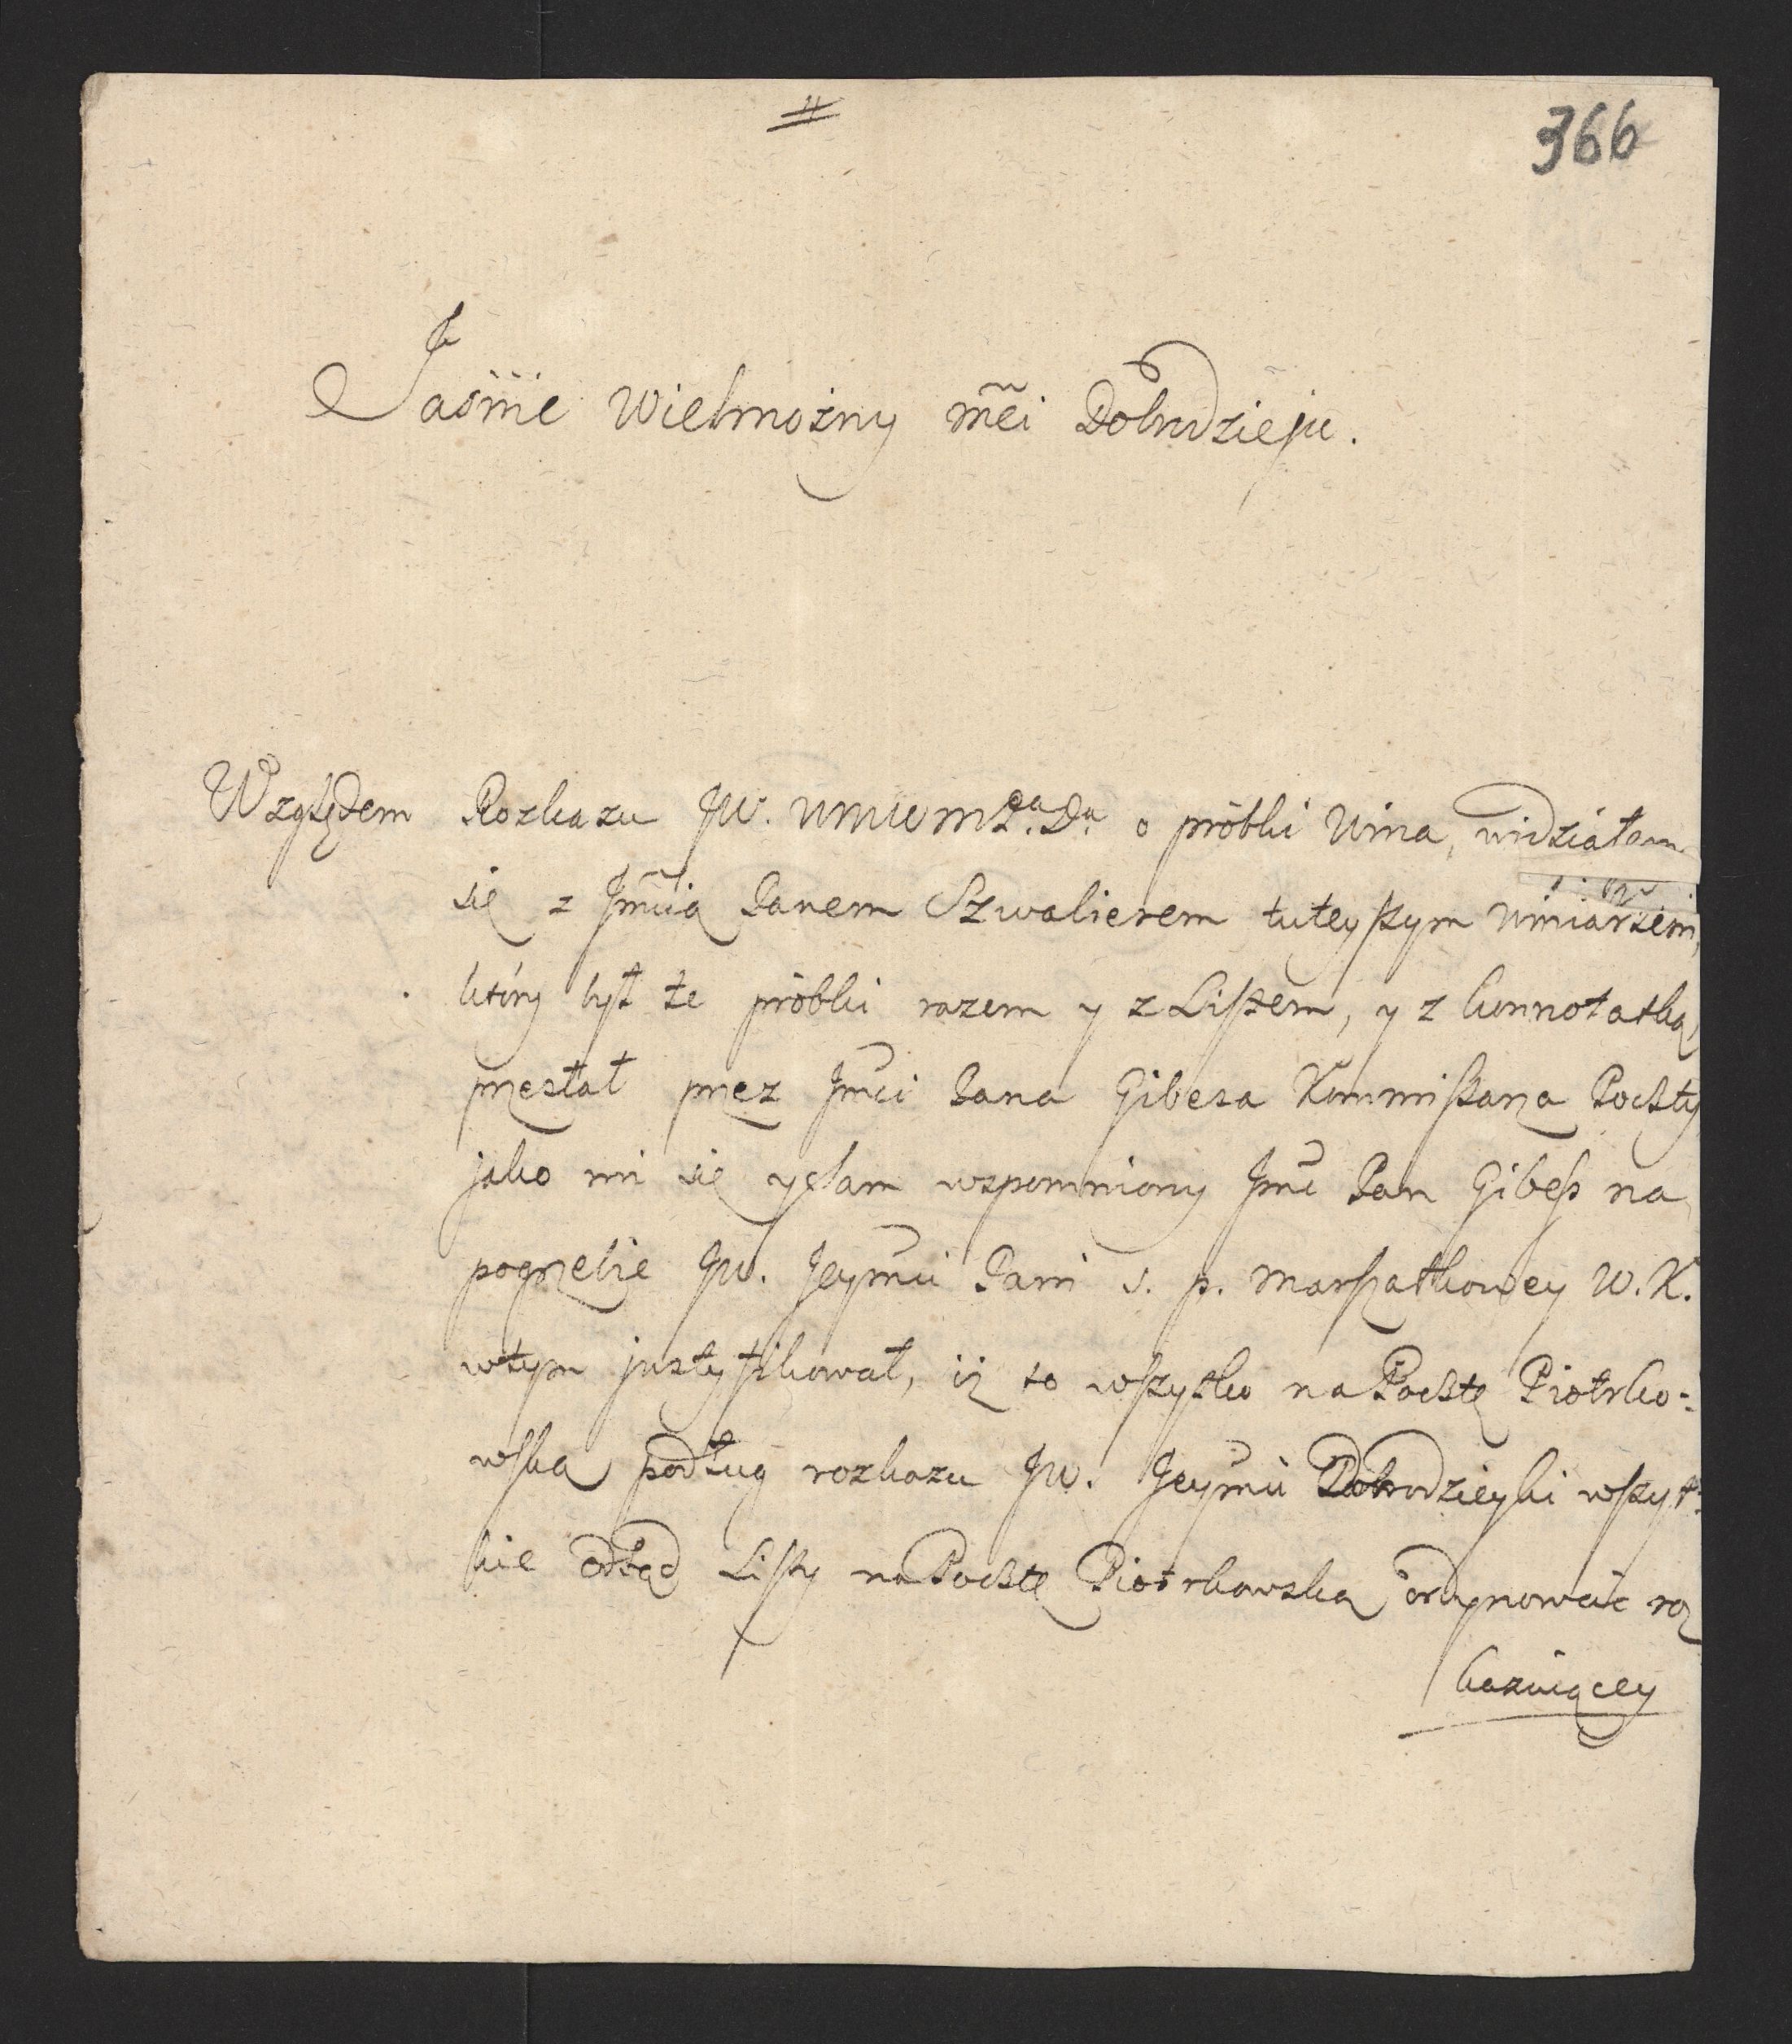 366
Jaśnie Wielmożny mći Dobrodzieju.
Względem Rozkazu JW. WMWM Pa. Da. o próbki Wina, widziałem
się z Jmcią Panem Szwalierem tuteyszym Winiarzem,
który był te próbki razem y z Listem, y z konnotatką
przesłał przez Jmci Pana Gibesa Kommissarza Poczty
jako mi się y sam wspomniony Jmć Pan Gibess na
pogrzebie JW. Jeymci Pani s. p. Marszałkowey W. K.
w tym justyfikował, iż to wszytko na Pocztę Piotrko-
wską podług rozkazu JW. Jeymci Dobrodzieyki wszyt-
kie odtąd Listy na Pocztę Piotrkowską ordynować roz
kazuiącey